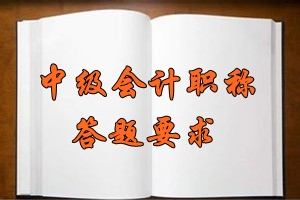 中级会计职称
答题要求